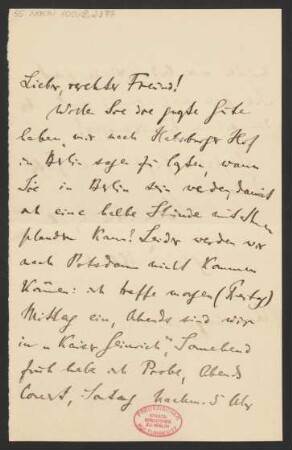 Lieber, verehrter Freund!
Wollen Sie die große Güte
haben, mir nach Habsburger Hof
in Berlin sagen zu lassen, wann
Sie in Berlin sein werden, damit
ich eine halbe Stunde mit Ihnen
plaudern kann? Leider werden wir
nach Potsdam nicht kommen
können: ich treffe morgen (Freitag)
Mittag ein, Abends sind wir
in "Kaiser Heinrich", Sonnabend
früh habe ich Probe, Abends
Concert, Sonntag Nachm. 5 Uhr